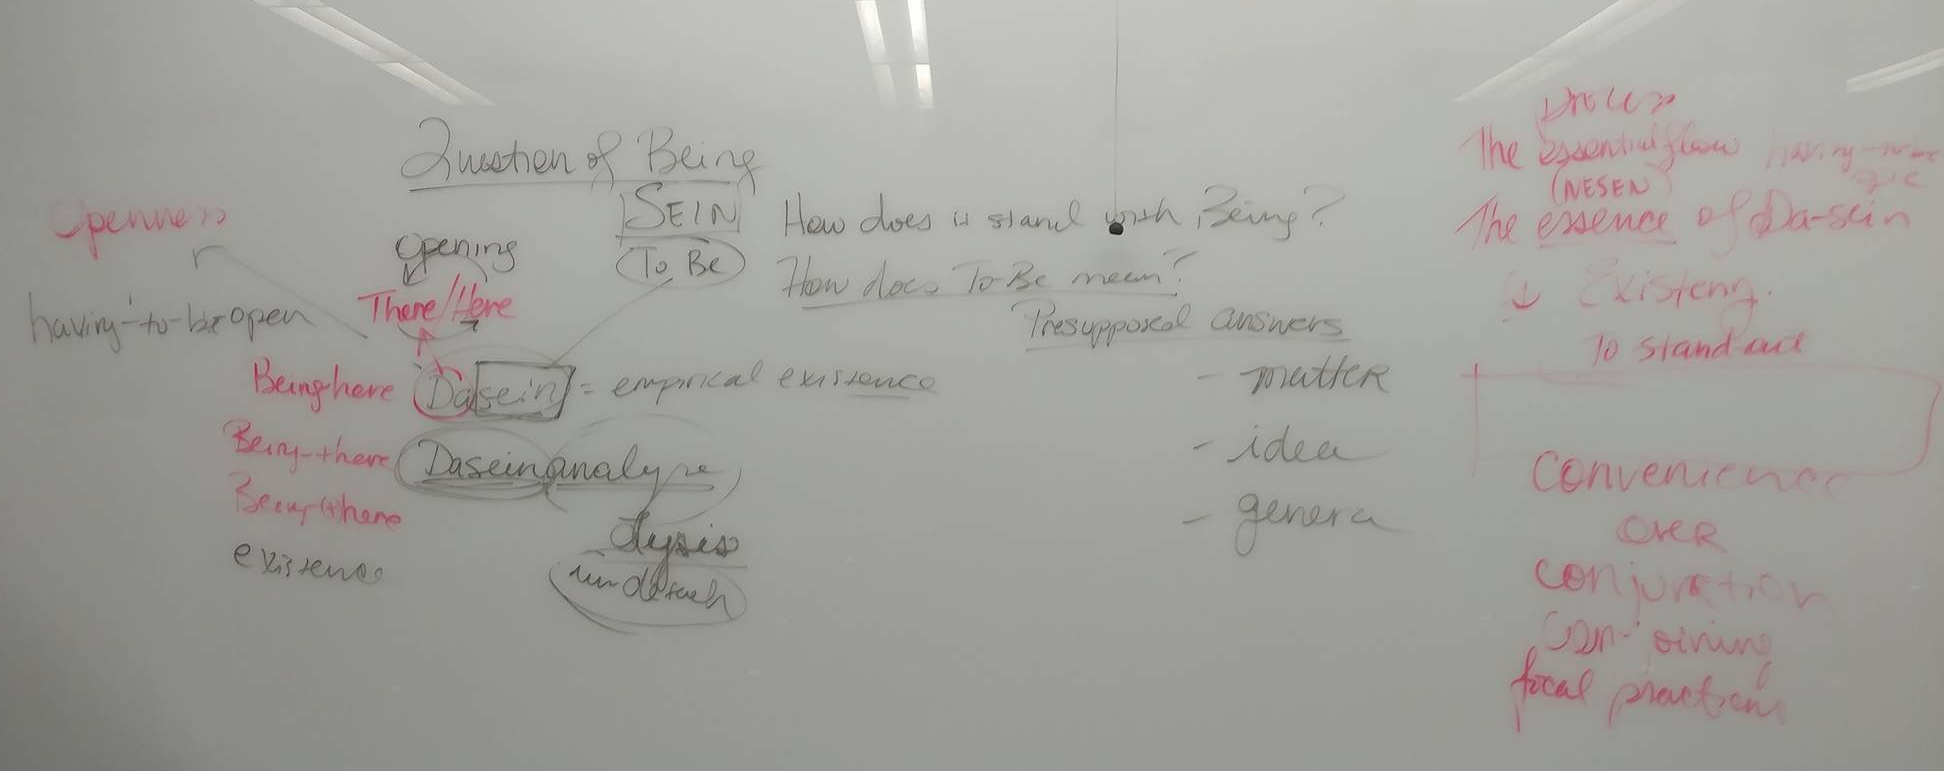 Question of Being
SEIN
To Be
How does it stand with Being?
How does To Be mean?
Presupposed answers
- matter
- idea
- genera
Openness
Opening
There/Here
having-to-be open
Being here
Dasein = empirical existence
Being-there
Daseinanalyse
Being there
lysis
existence
The essential flow having-to-be
(WESEN)
The essence of Da-sein
↓ Existeng.
To stand out
Convenience
over
conjunction
focal practices